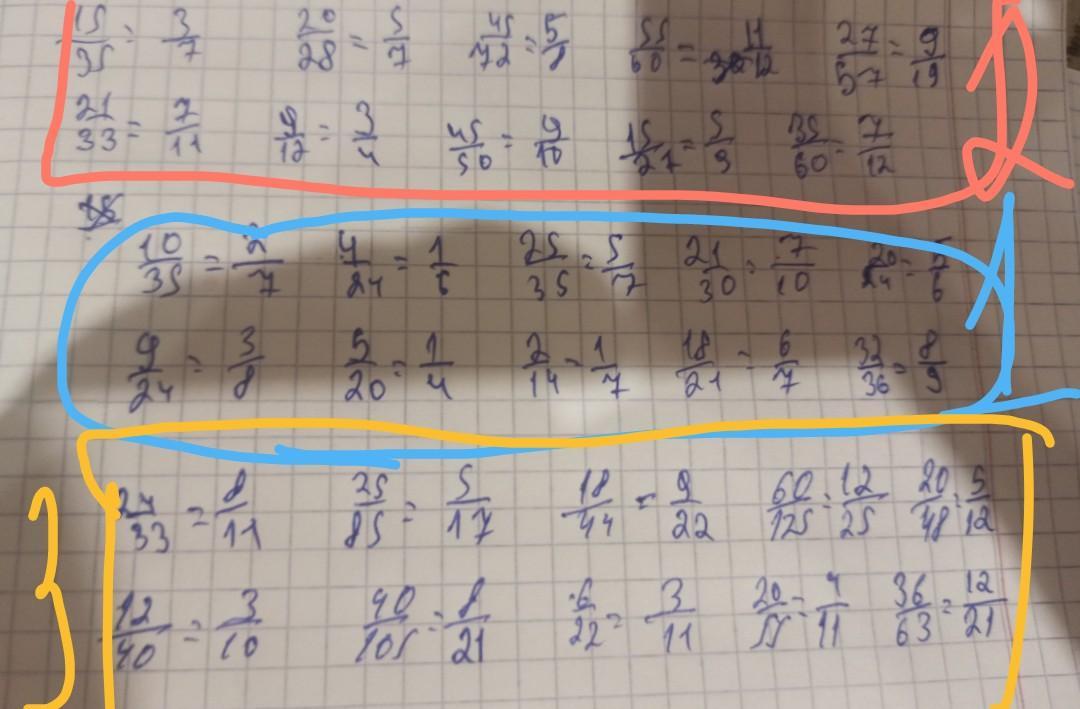 15/35 = 3/7 20/28 = 5/7 45/72 = 5/8 55/60 = 11/12 27/57 = 9/19
21/33 = 7/11 9/12 = 3/4 45/50 = 9/10 15/27 = 5/9 35/60 = 7/12
2
10/35 = 2/7 4/24 = 1/6 25/35 = 5/7 21/30 = 7/10 20/24 = 5/6
1
9/24 = 3/8 5/20 = 1/4 2/14 = 1/7 18/21 = 6/7 32/36 = 8/9
24/33 = 8/11 25/85 = 5/17 18/44 = 9/22 60/125 = 12/25 20/48 = 5/12
3
12/40 = 3/10 40/105 = 8/21 6/22 = 3/11 20/55 = 4/11 36/63 = 12/21